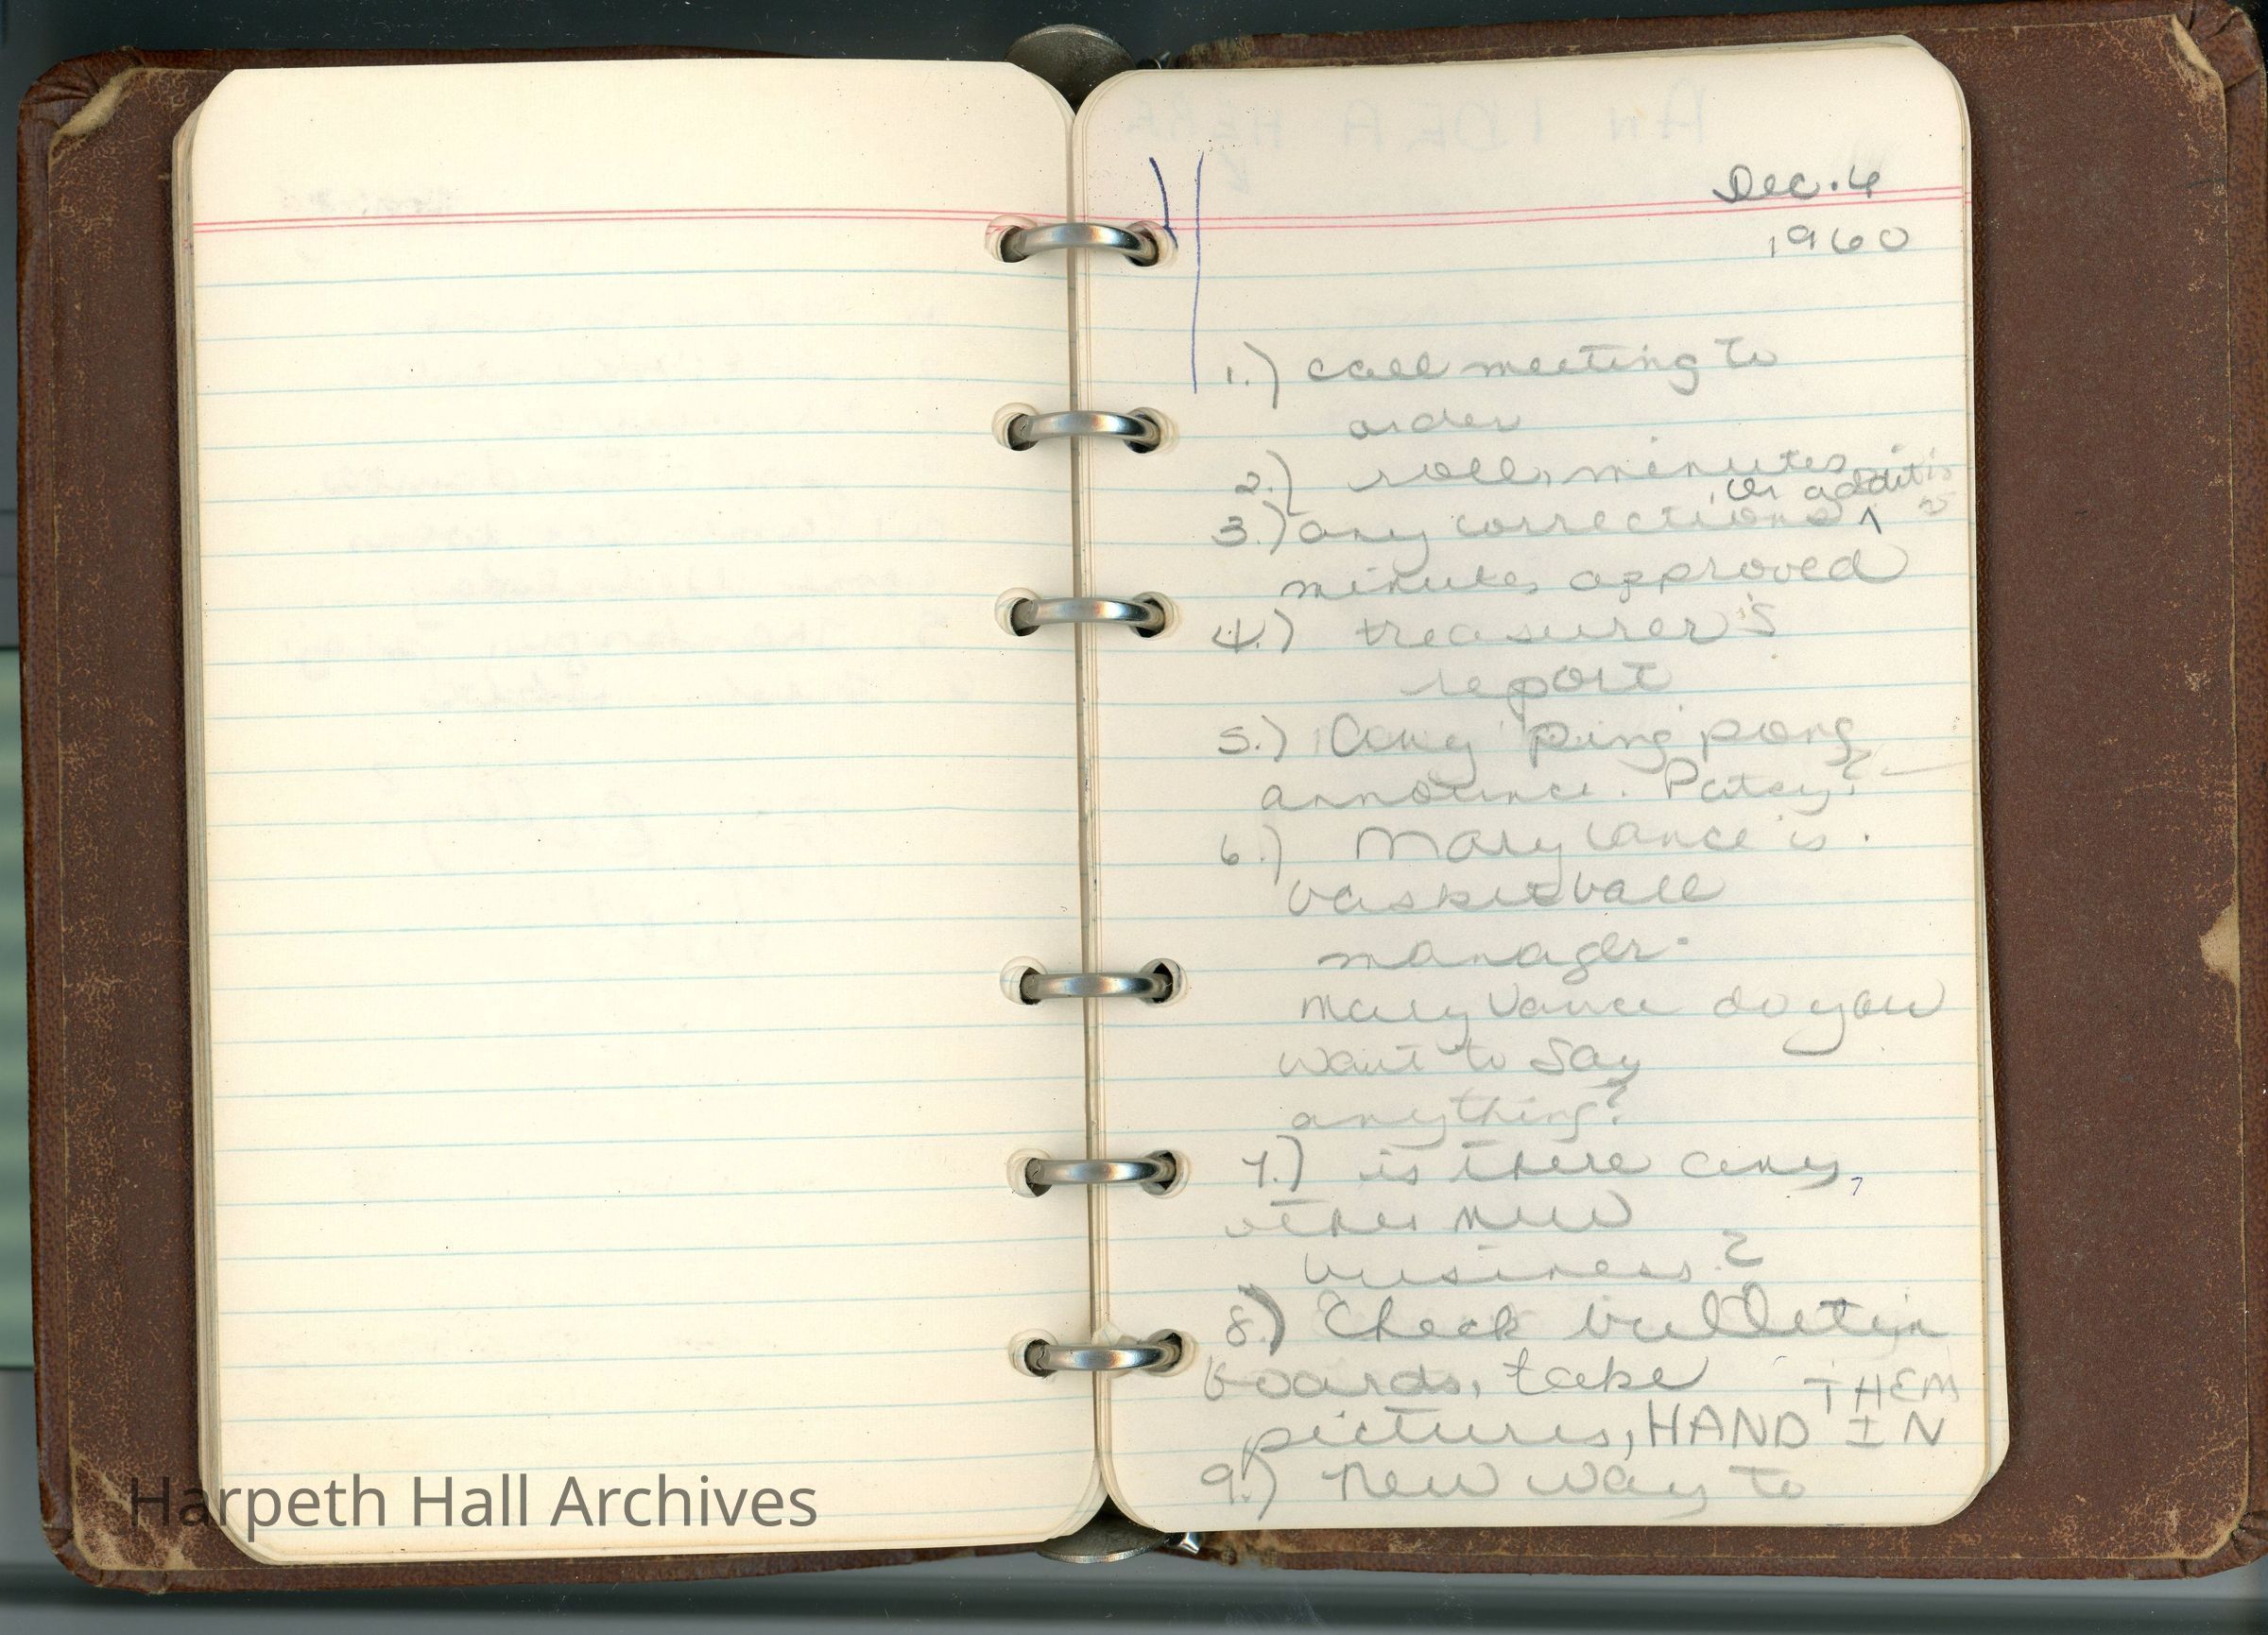 Dec. 6
1960
1.) call meeting to
order
2.) roll, minutes
3.) any corrections ^ or additis
minutes approved
4.) treasurer's
report
5.) Any ping pong
announce. Patsy?
6.) Mary Vance is
basketball
manager.
Mary Vance do you
want to say
anything?
7.) is there any
other new
business?
8.) Check bulletin
boards, take
pictures, HAND THEM IN
9.) New way to
Harpeth Hall Archives